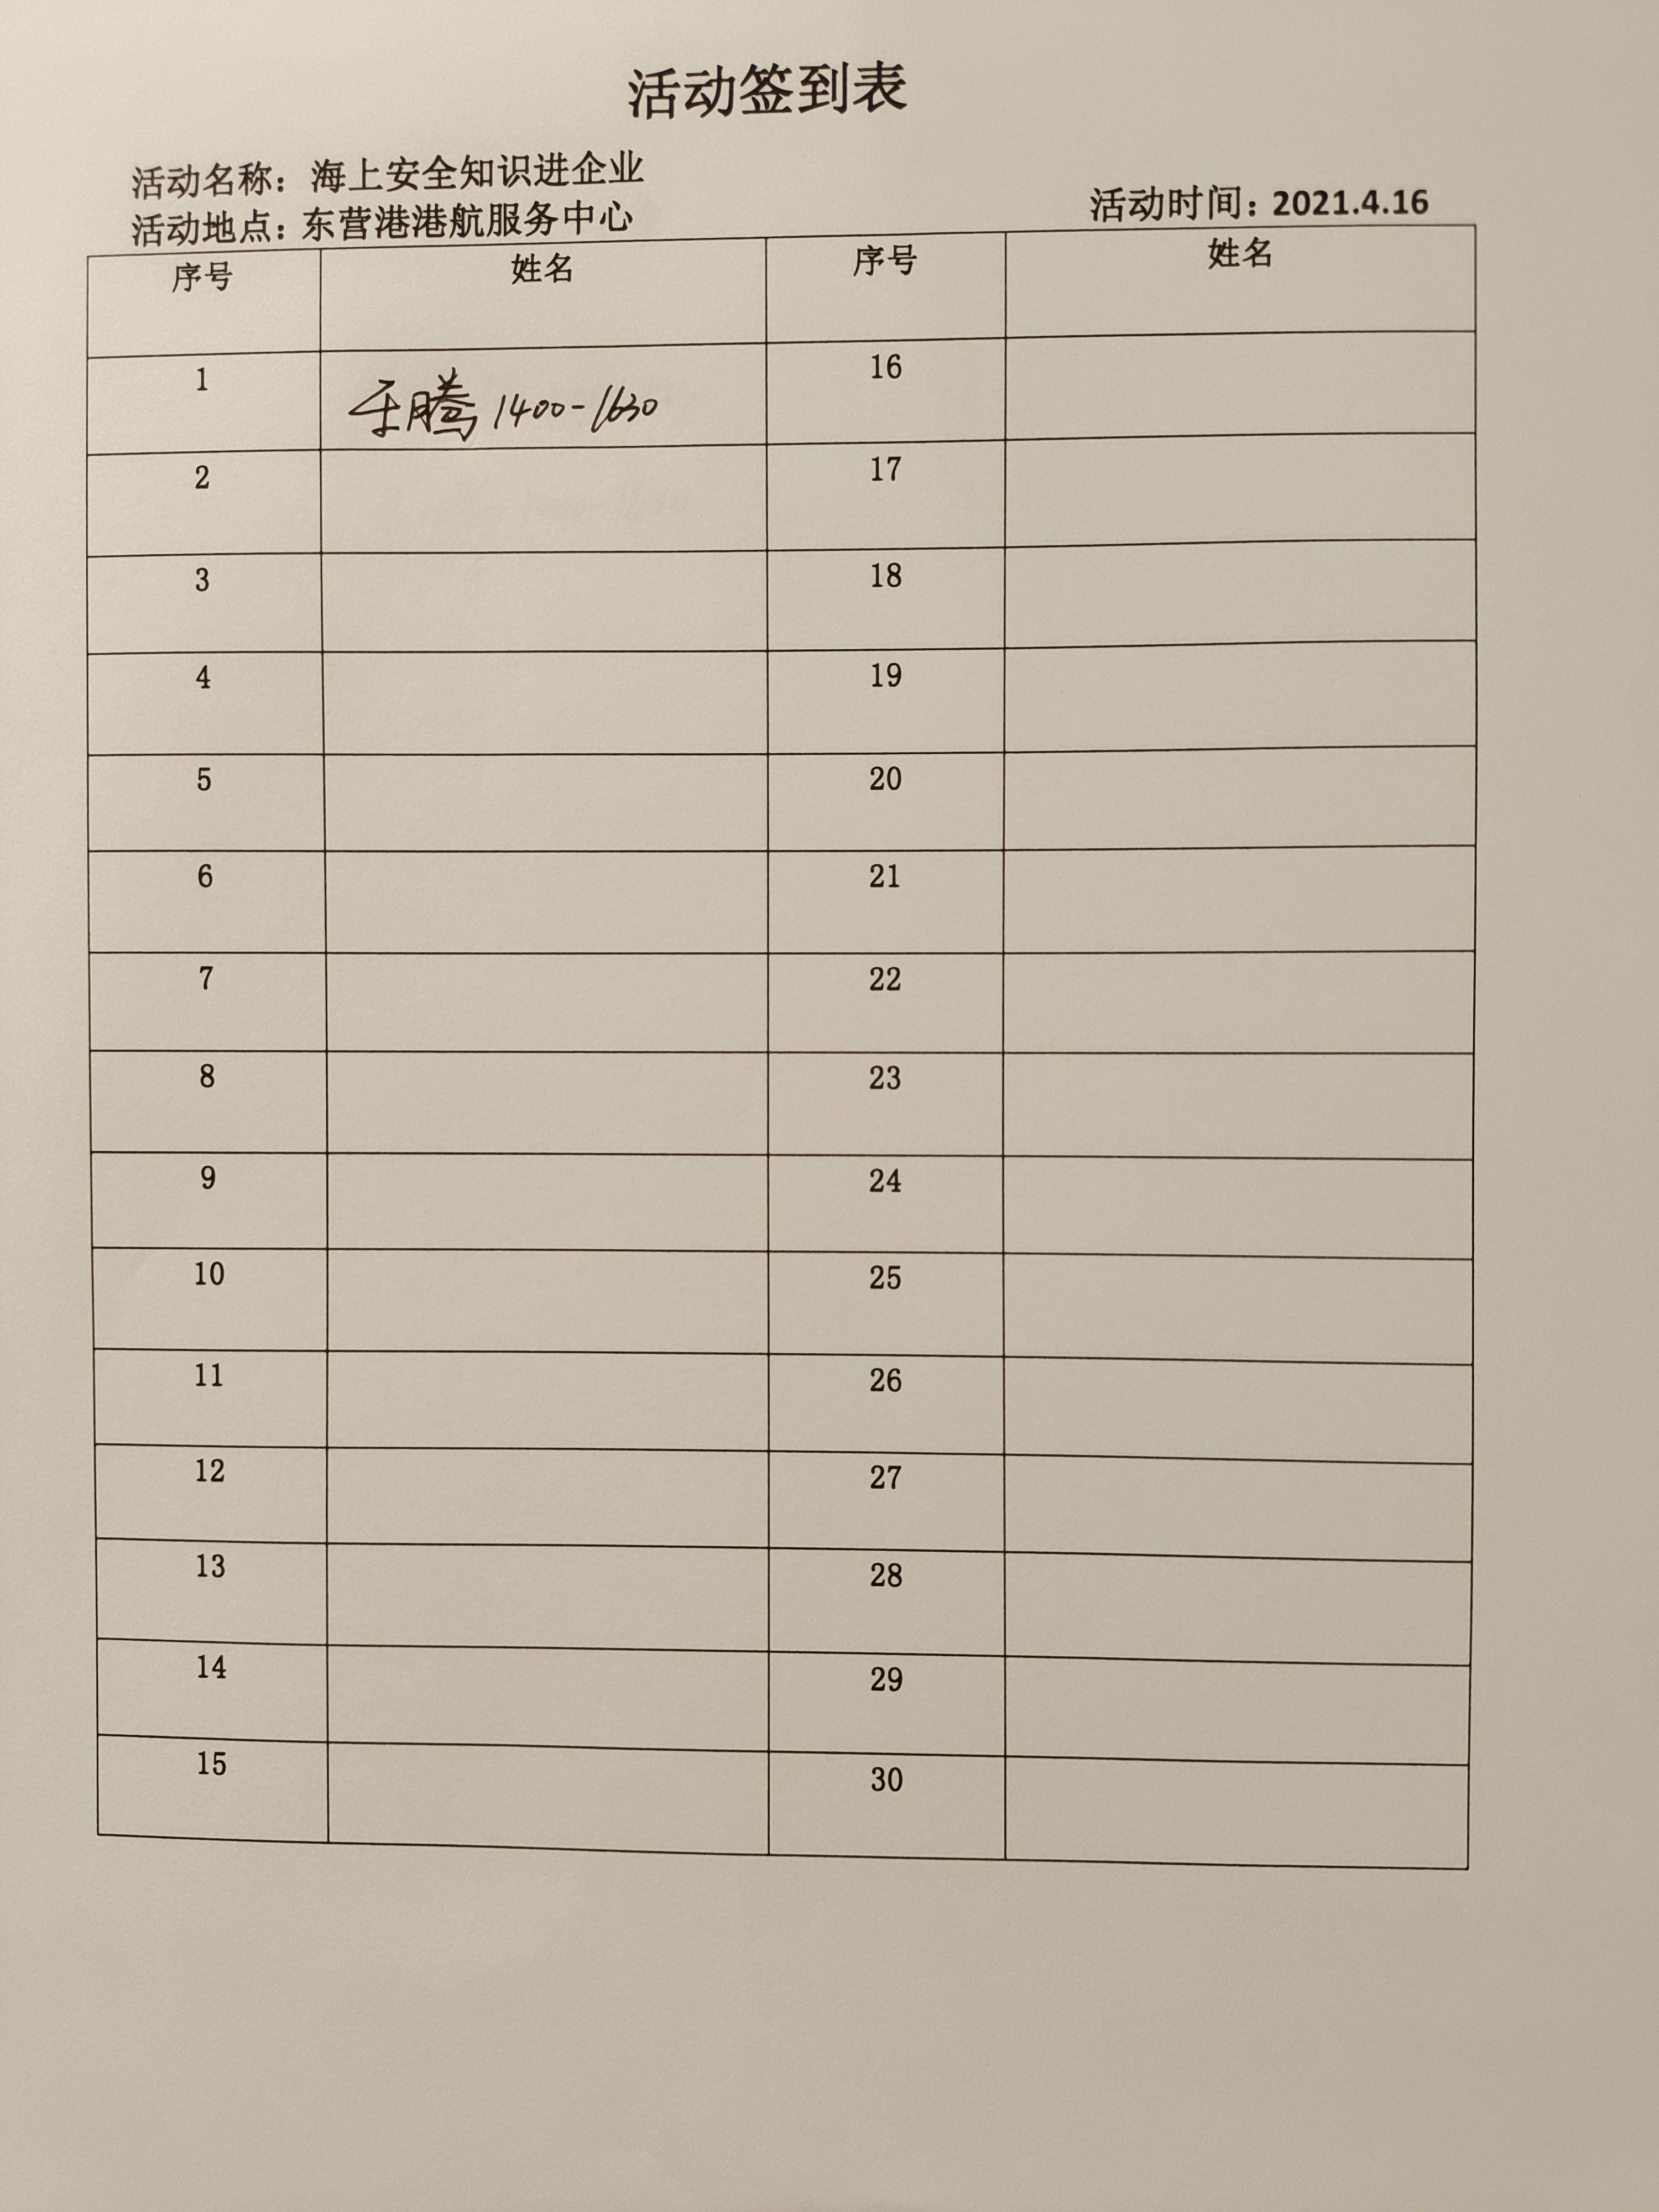 活动签到表
活动名称：海上安全知识进企业
活动地点：东营港港航服务中心
活动时间：2021.4.16
序号 姓名 序号 姓名
1 于腾 1400-1630 16
2 17
3 18
4 19
5 20
6 21
7 22
8 23
9 24
10 25
11 26
12 27
13 28
14 29
15 30